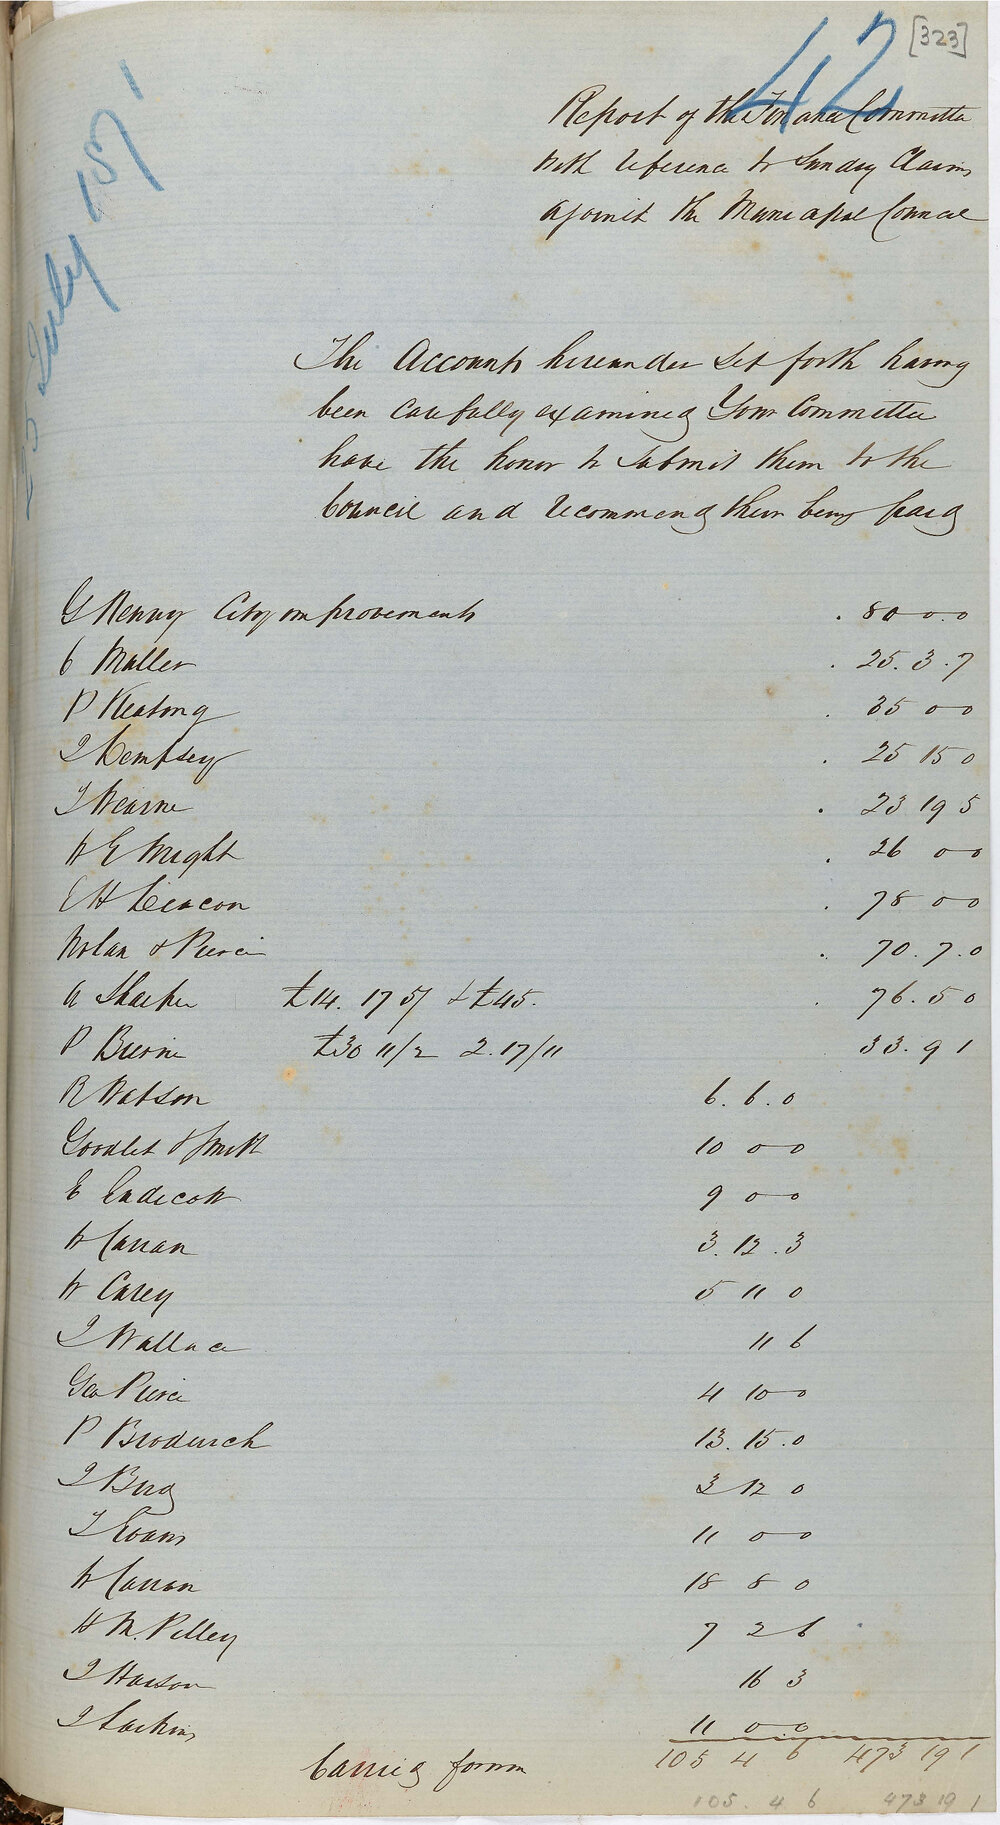 [323]
42
25 July 1857
Report of the Finance Committee
with reference to Sundry Claims
against the Municipal Council
The Accounts hereunder set forth having
been carefully examined Your Committee
have the honor to submit them to the
Council and recommend them being paid
G Renny City improvements . 80 0.0
C Muller . 25.3.7
P Keating . 35 0 0
J Dempsey . 25 15 0
J Wearne . 23 19 5
W E Wright . 26 0 0
E H Deacon . 78 0 0
Nolan & Pierce . 70.7.0
A Sharpe £14. 17 5/ & £45. . 76.5 0
P Beirne £30 11/2 2.17/11 33.9 1
R Watson 6.6.0
Goodlet & Smith 10 0 0
E Endicott 9 0 0
W Curran 3.12.3
W Carey 5 11 0
J Wallace 11 6
Geo Pierce 4 10 0
P Broderick 13.15.0
J Bird 3 12 0
J Evans 11 0 0
W Curran 18 8 0
H M. Pilley 7 2 6
J Hanson 16 3
J Larkins 11 0 0
Carried forwd 105 4 6 473 19 1
105. 4 6 473 19 1